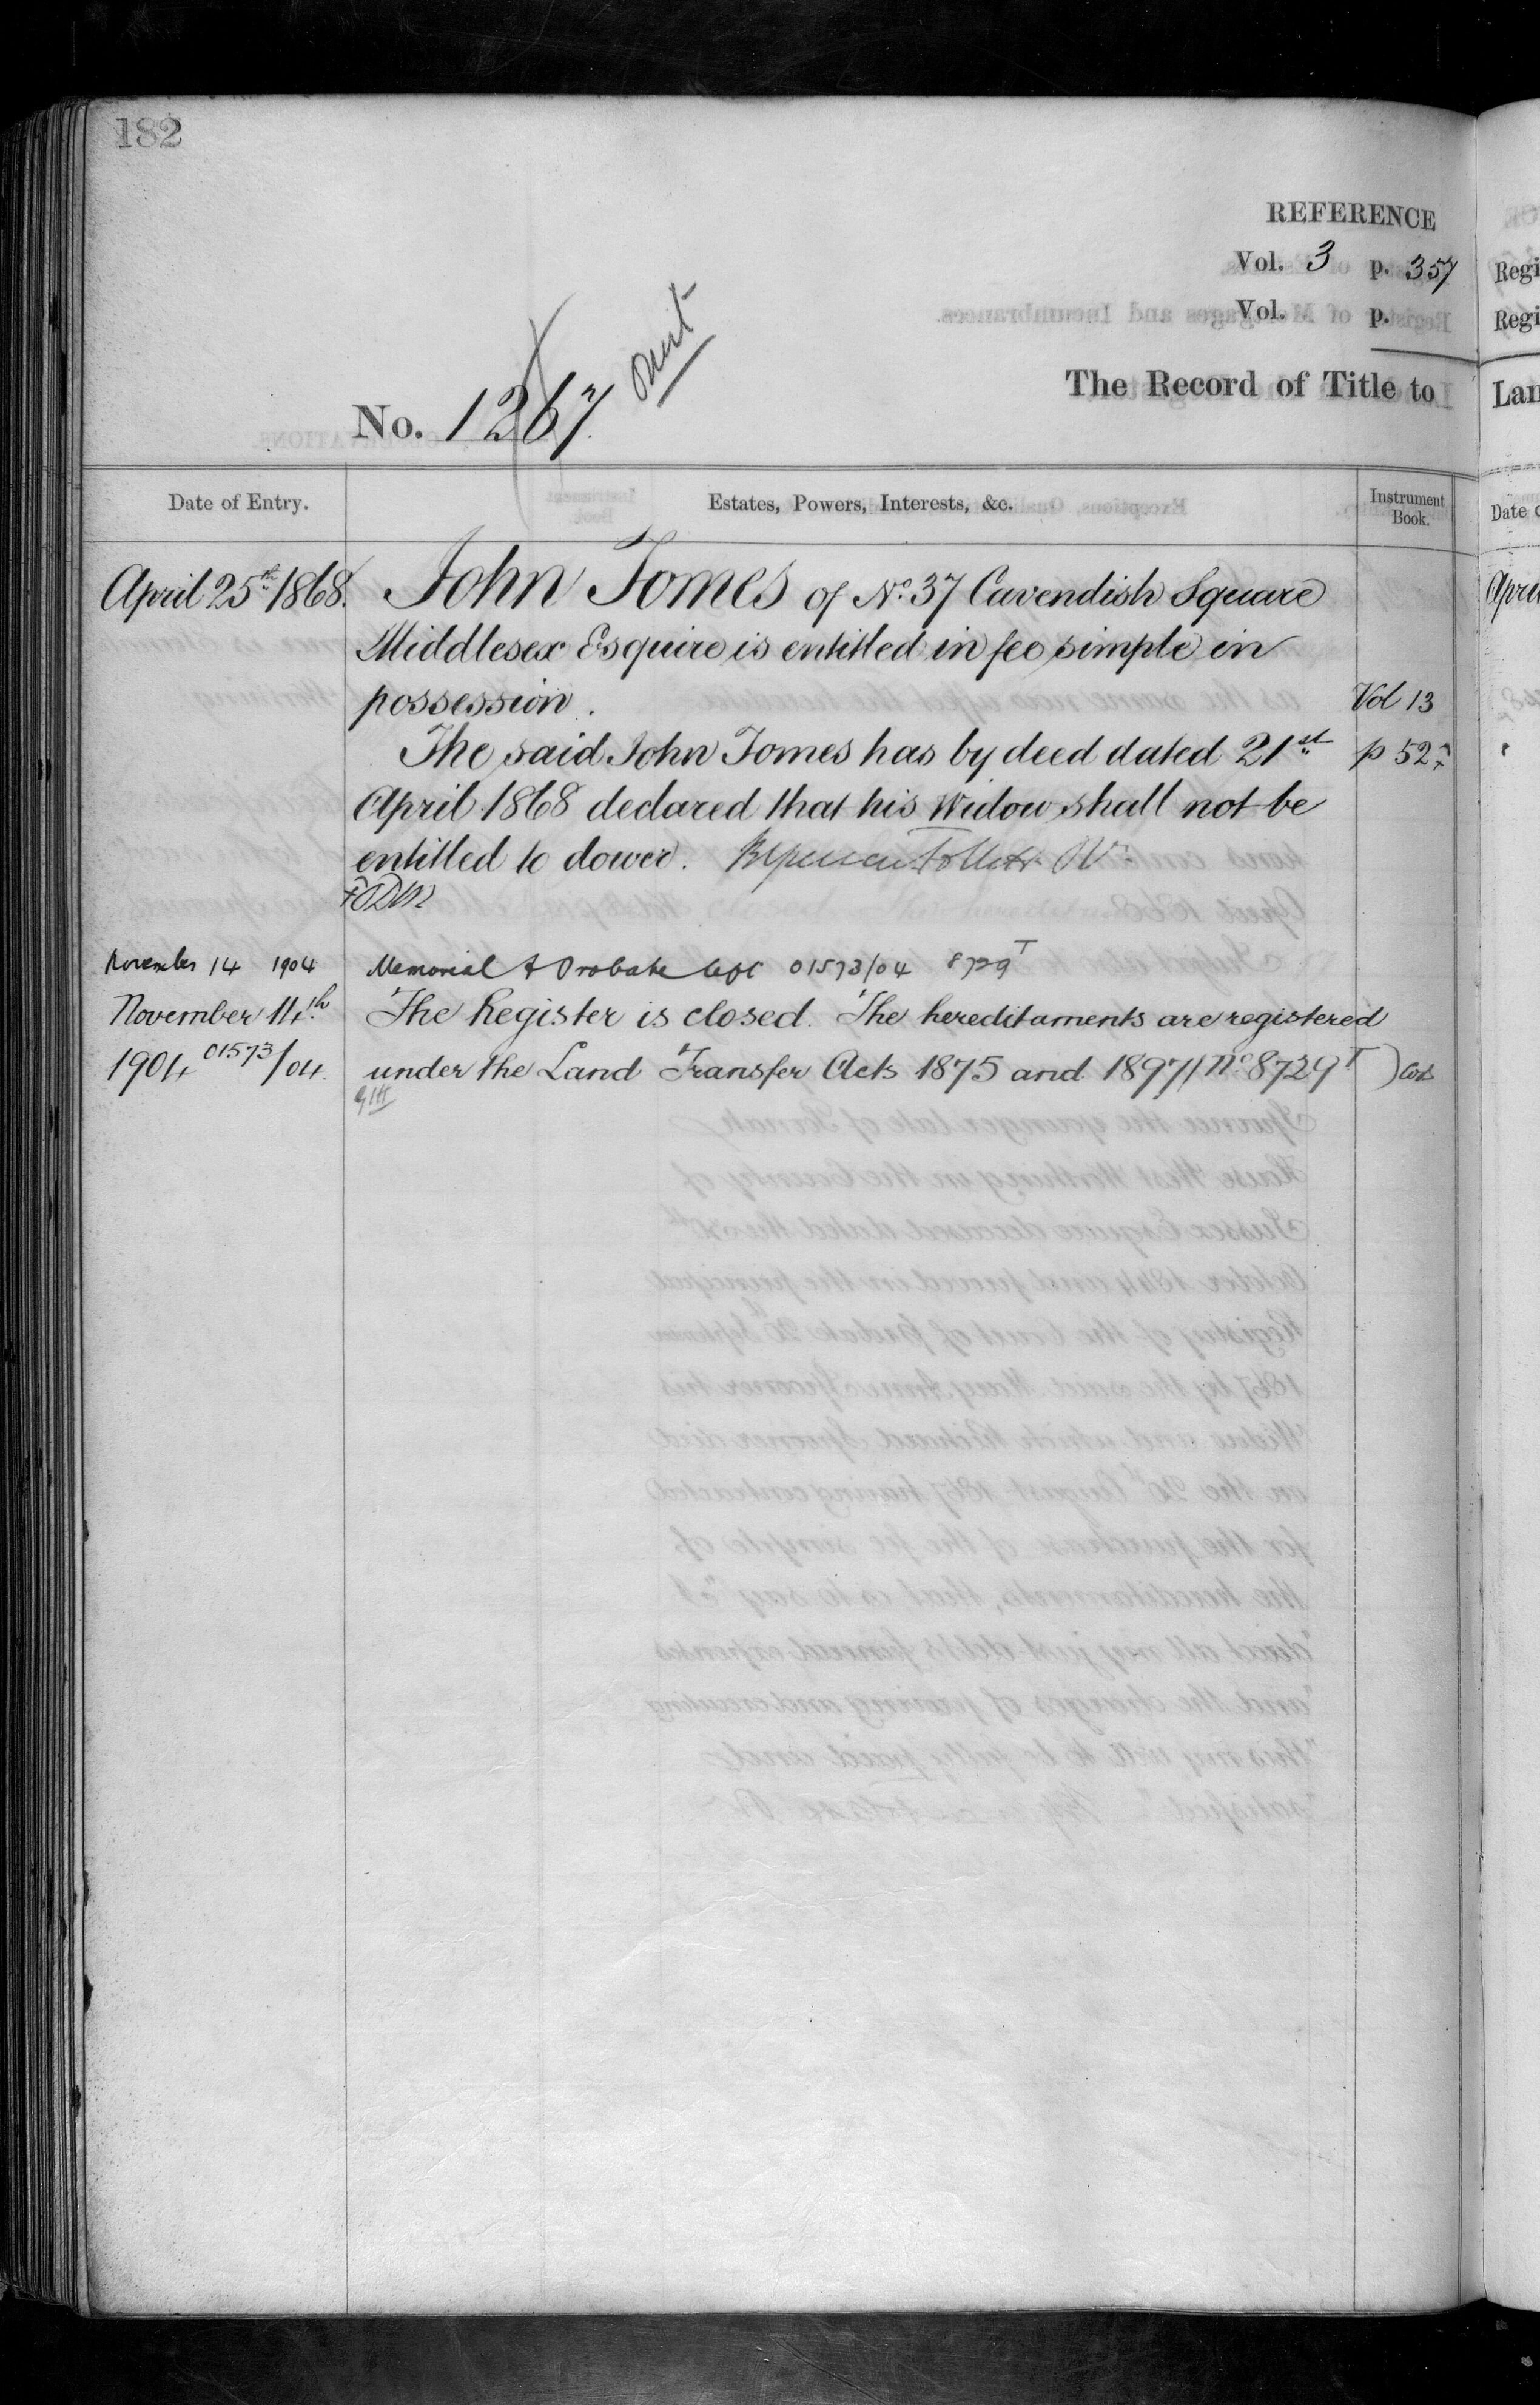 182
REFERENCE
Vol. 3 p. 357
Vol. p.
No. 1267. Omit
The Record of Title to
Date of Entry.
Estates, Powers, Interests, &c.
Instrument
Book.
April 25th 1868. John Tomes of No. 37 Cavendish Square
Middlesex Esquire is entitled in fee simple in
possession. Vol 13
The said John Tomes has by deed dated 21st p 527
April 1868 declared that his Widow shall not be
entitled to dower.
November 14 1904 Memorial & Probate left 01573/04 8729T
November 14th The Register is closed. The hereditaments are registered
1904 01573/04. under the Land Transfer Acts 1875 and 1897 (No. 8729T)
Regi
Regi
Lan
Date o